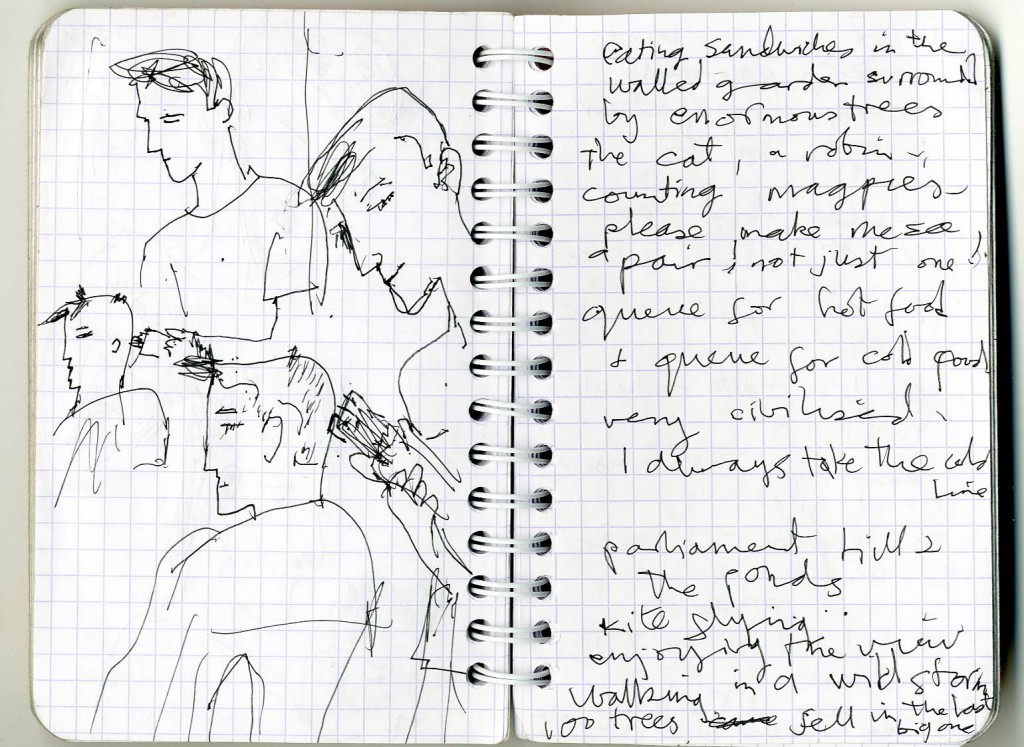 eating sandwiches in the
walled garden surround
by enormous trees
the cat, a robin,
counting magpies
please make me see
a pair, not just one!
queue for hot food
+ queue for cold food
very civilised,
I always take the cold
line
parliament hill
the ponds
kite flying..
enjoying the view
walking in a wild storm
100 trees fell in the last
big one